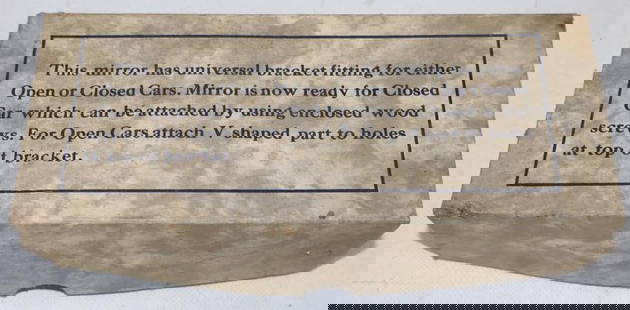 This mirror has universal bracket fitting for either
Open or Closed Cars. Mirror is now ready for Closed
Car which can be attached by using enclosed wood
screws. For Open Cars attach V shaped part to holes
at top of bracket.